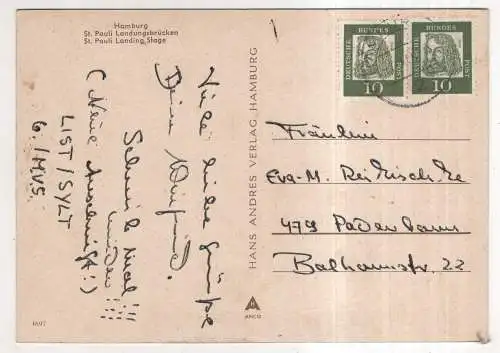 Hamburg
St. Pauli Landungsbrücken
St. Pauli Landing Stage
Viele liebe Grüße
Deine
Schreib mal
wieder!!!
(Neue Anschrift:)
LIST/SYLT
6./MVS.
HANS ANDRES VERLAG HAMBURG
ANCO
DEUTSCHE BUNDES POST
10
DEUTSCHE BUNDES POST
10
Fräulein
Eva-M.
479 Paderborn
Balhornstr. 22